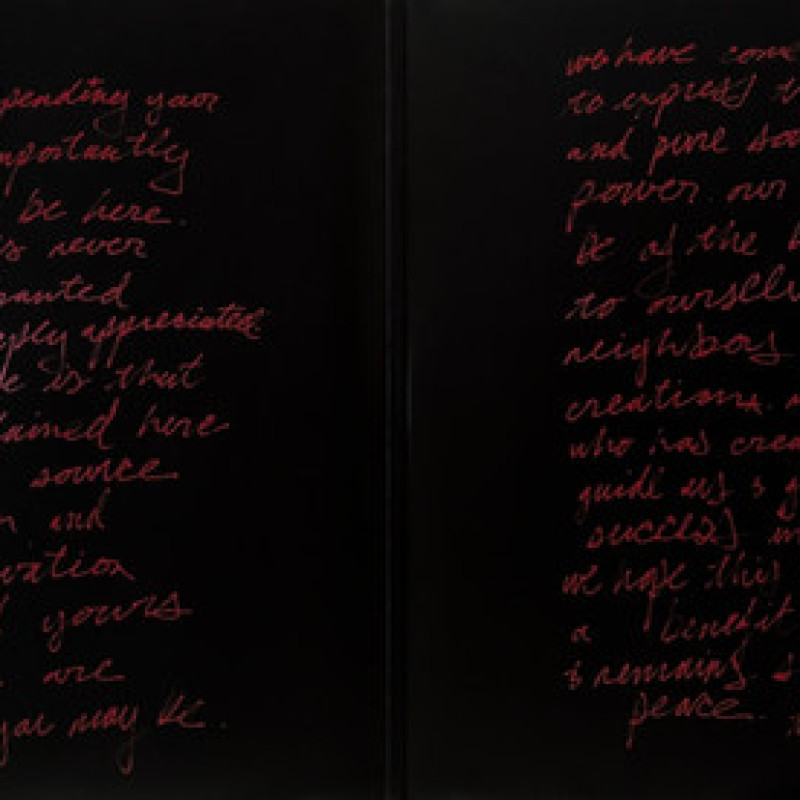 pending your
mportantly
be here.
is never
ranted
eply appreciated.
is that
ained here
source
and
vation
yours
are
you may be.
we have com
to express t
and pure so
power. our
be of the b
to ourselv
neighbors
creations.
who has crea
guide us & g
success
we hope this
a benefit
& remains
peace.